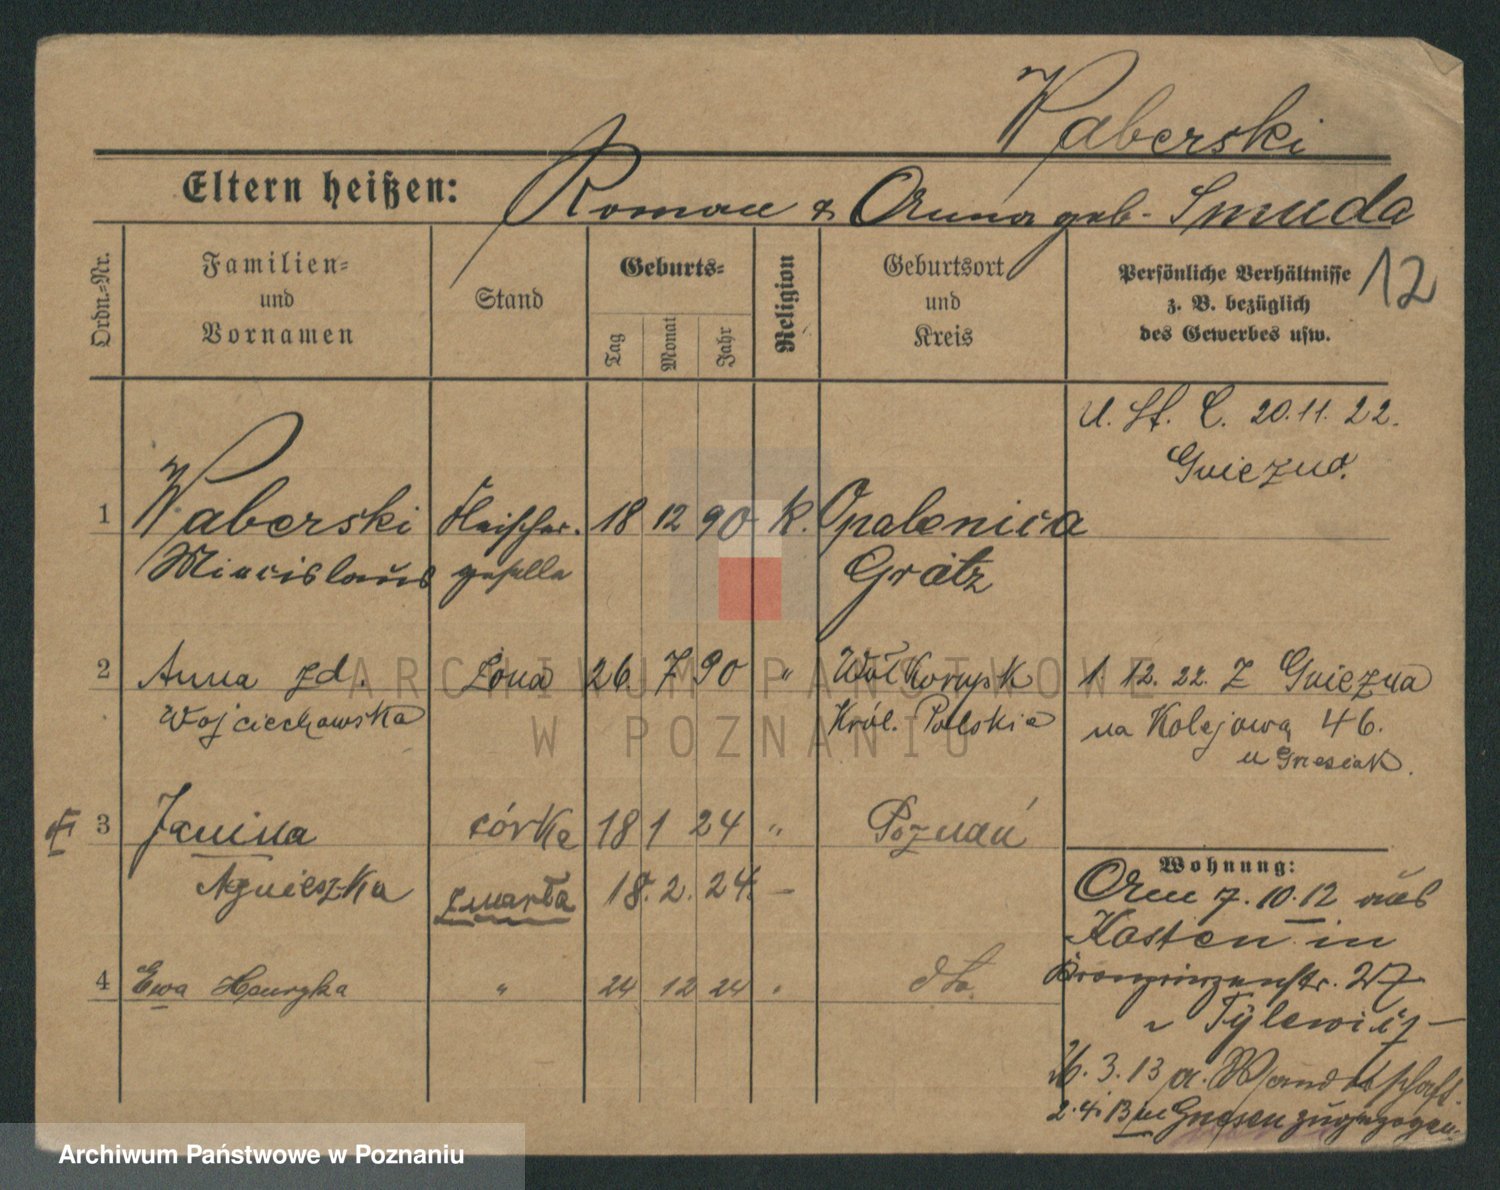 Waberski
Eltern heißen: Roman & Anna geb. Smuda
Ordn.=Nr.
Familien=
und
Vornamen
Stand
Geburts=
Tag
Monat
Jahr
Religion
Geburtsort
und
Kreis
Persönliche Verhältnisse
z. B. bezüglich
des Gewerbes usw.
12
U. St. C. 20.11.22.
Gniezno.
1 Waberski Fleischer- 18 12 90 K. Opalenica
Miecislaus geselle Grätz
2 Anna zd. Żona 26 7 90 " 1. 12. 22. Z Gniezna
Wojciechowska Król. Polskie na Kolejową 46.
u Grzesiak.
3 Janina córka 18 1 24 " Poznań
Agnieszka zmarła 18. 2. 24. —
Wohnung:
Am 7. 10. 12 aus
Kosten in
4 Ewa Henryka " 24 12 24 " dto.
Kronprinzenstr. 27
Tylewicz
26. 3. 13 a. Wandschaft.
2. 4. 13 in Gnesen zugezogen.
ARCHIWUM PAŃSTWOWE
W POZNANIU
Archiwum Państwowe w Poznaniu